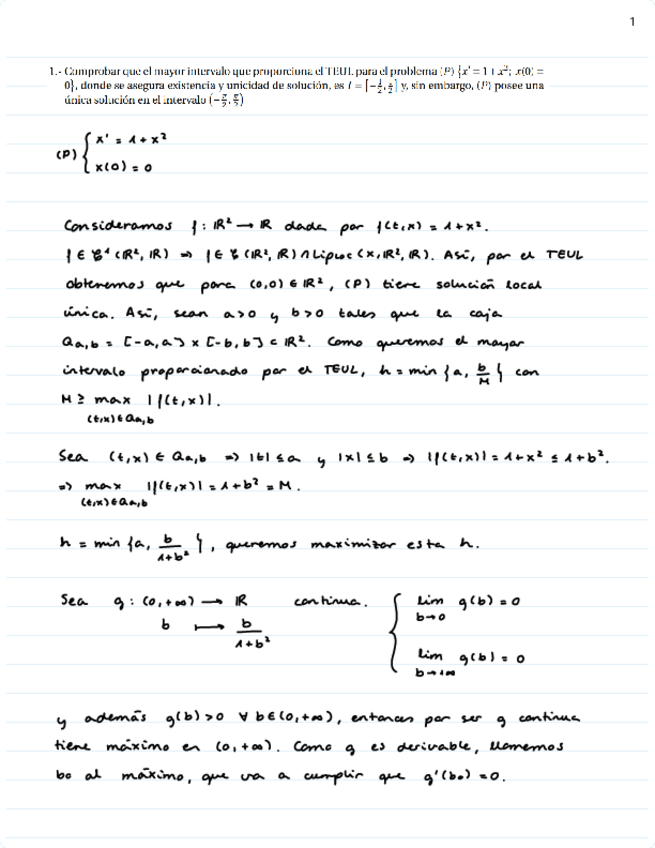 1
1.- Comprobar que el mayor intervalo que proporciona el TEUL para el problema (P) {x' = 1 + x²; x(0) =
0}, donde se asegura existencia y unicidad de solución, es I = [−1/2, 1/2] y, sin embargo, (P) posee una
única solución en el intervalo (−π/2, π/2)
(P) { x' = 1 + x²
x(0) = 0
Consideramos f: ℝ² → ℝ dada por f(t,x) = 1 + x².
f ∈ C¹(ℝ², ℝ) ⇒ f ∈ C(ℝ², ℝ) ∩ Liploc(x, ℝ², ℝ). Así, por el TEUL
obtenemos que para (0,0) ∈ ℝ², (P) tiene solución local
única. Así, sean a>0 y b>0 tales que la caja
Qa,b = [-a,a] x [-b,b] ⊂ ℝ². Como queremos el mayor
intervalo proporcionado por el TEUL, h = min {a, b/M} con
M ≥ max |f(t,x)|.
(t,x)∈Qa,b
Sea (t,x) ∈ Qa,b ⇒ |t| ≤ a y |x| ≤ b ⇒ |f(t,x)| = 1+x² ≤ 1+b².
⇒ max |f(t,x)| = 1+b² = M.
(t,x)∈Qa,b
h = min {a, b/(1+b²)}, queremos maximizar esta h.
Sea g: (0,+∞) → ℝ continua. { lim g(b) = 0
b ⟼ b/(1+b²) b→0
lim g(b) = 0
b→+∞
y además g(b)>0 ∀ b∈(0,+∞), entonces por ser g continua
tiene máximo en (0,+∞). Como g es derivable, llamemos
b₀ al máximo, que va a cumplir que g'(b₀) = 0.